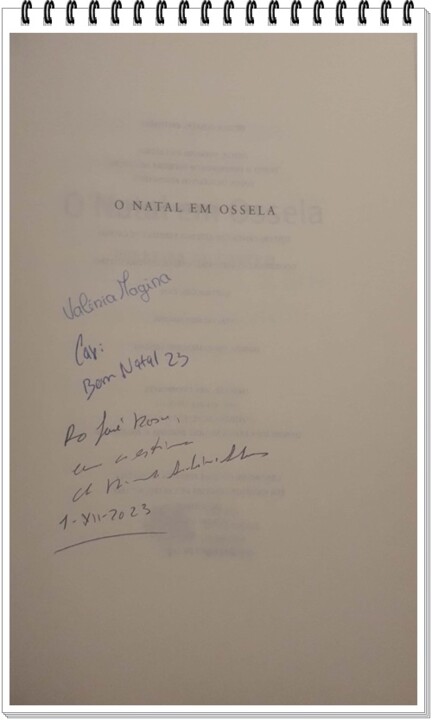 O NATAL EM OSSELA
Valénia Magina
Car:
Bom Natal 23
Ao José
com a estima
de
1-XII-2023